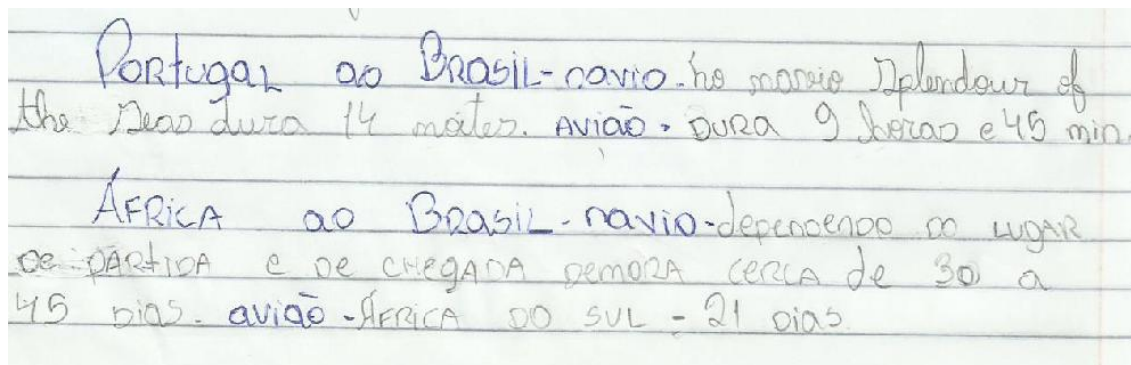 Portugal ao Brasil-navio-no navio Splendour of
the Seas dura 14 noites. Avião - dura 9 horas e 45 min.
África ao Brasil-navio-dependendo do lugar
de partida e de chegada demora cerca de 30 a
45 dias. avião-África do sul - 21 dias